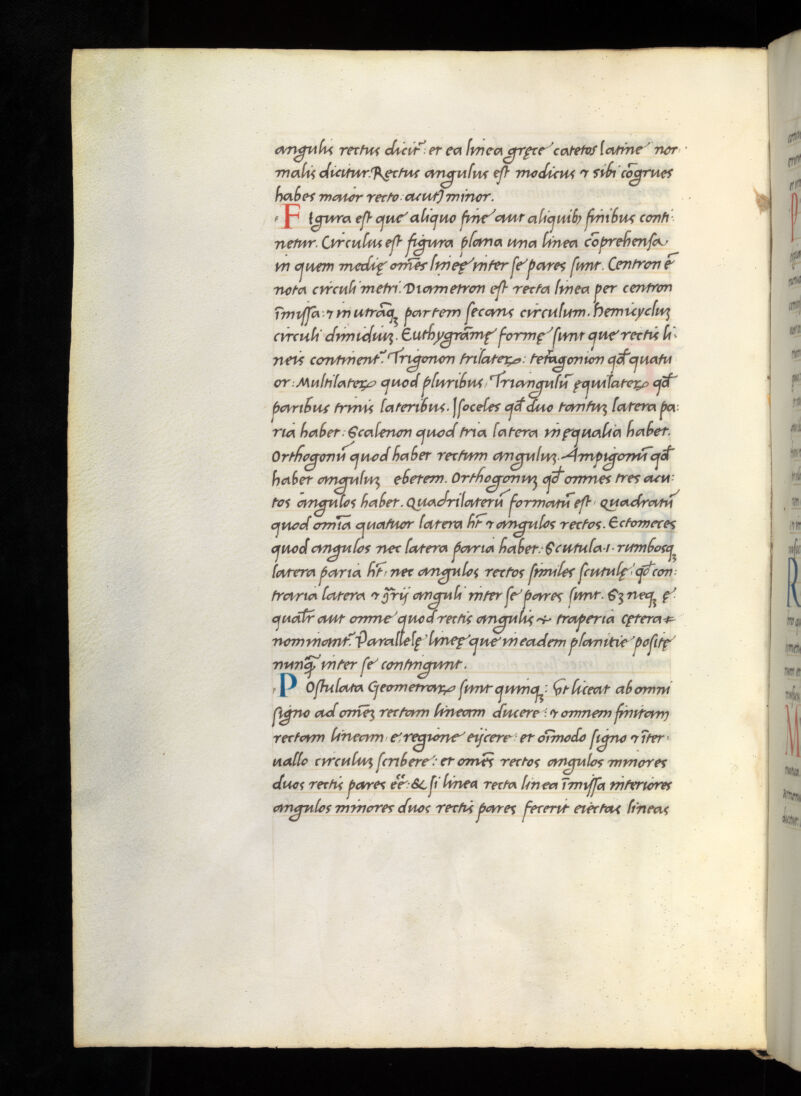 angulis rectus diciť: et ea linea gręce catetos latine nor
malis dicitur. Rectus angulus est modicus ⁊ sibi cōgrues
habes maior recto: acutꝰ minor.
Figura est que aliquo fine aut aliquibꝫ finibus conti
netur. Circulus est figura plana una linea cōprehensa
in quem medię om̄es lineę inter se pares sunt. Centron ē
nota circuli metri. Diametron est recta linea per centron
īmissa: ⁊ in utrāqꝫ partem secans circulum. hemicycluꝫ
circuli dimidiuꝫ. Euthygrāmę formę sunt que rectis li
neis continenť. Trigonon trilateꝝ: tetragonion qđ quatu
or: Multilateꝝ quod pluribus. Triangulū ęquilateꝝ qđ
paribus trinis lateribus. Isoceles qđ duo tantuꝫ latera pa:
ria habet. Scalenon quod tria latera inęqualia habet.
Orthogonū quod habet rectum anguluꝫ. Ampigonū qđ
habet anguluꝫ ebetem. Orthogonuꝫ qđ omnes tres acu:
tos angulos habet. Quadrilaterū formatū est. Quadratū
quod omīa quatuor latera hīt ⁊ angulos rectos. Ectomeces
quod angulos nec latera paria habet. Scutula .i. rumbosqꝫ
latera paria hīt: nec angulos rectos similes scutulę: qđ con:
traria latera ⁊ 9̄rij anguli inter se pares sunt. Sꝫ neqꝫ ę
qualr̄ aut omne quod rectis angulis ÷ trapezia cętera
nominanť. Parallelę lineę que in eadem planitie positę
nunq̄ꝫ inter se contingunt.
Postulata Geometraꝝ sunt quinqꝫ: Ut liceat ab omni
signo ad om̄eꝫ rectam lineam ducere: ⁊ omnem finitam
rectam lineam e regione eijcere: et oīmodo signo ⁊ īter
uallo circuluꝫ scribere: et om̄es rectos angulos minores
duos rectis pares eē: & si linea recta linea īmissa interiores
angulos minores duos rectis pares fecerit eiectas lineas